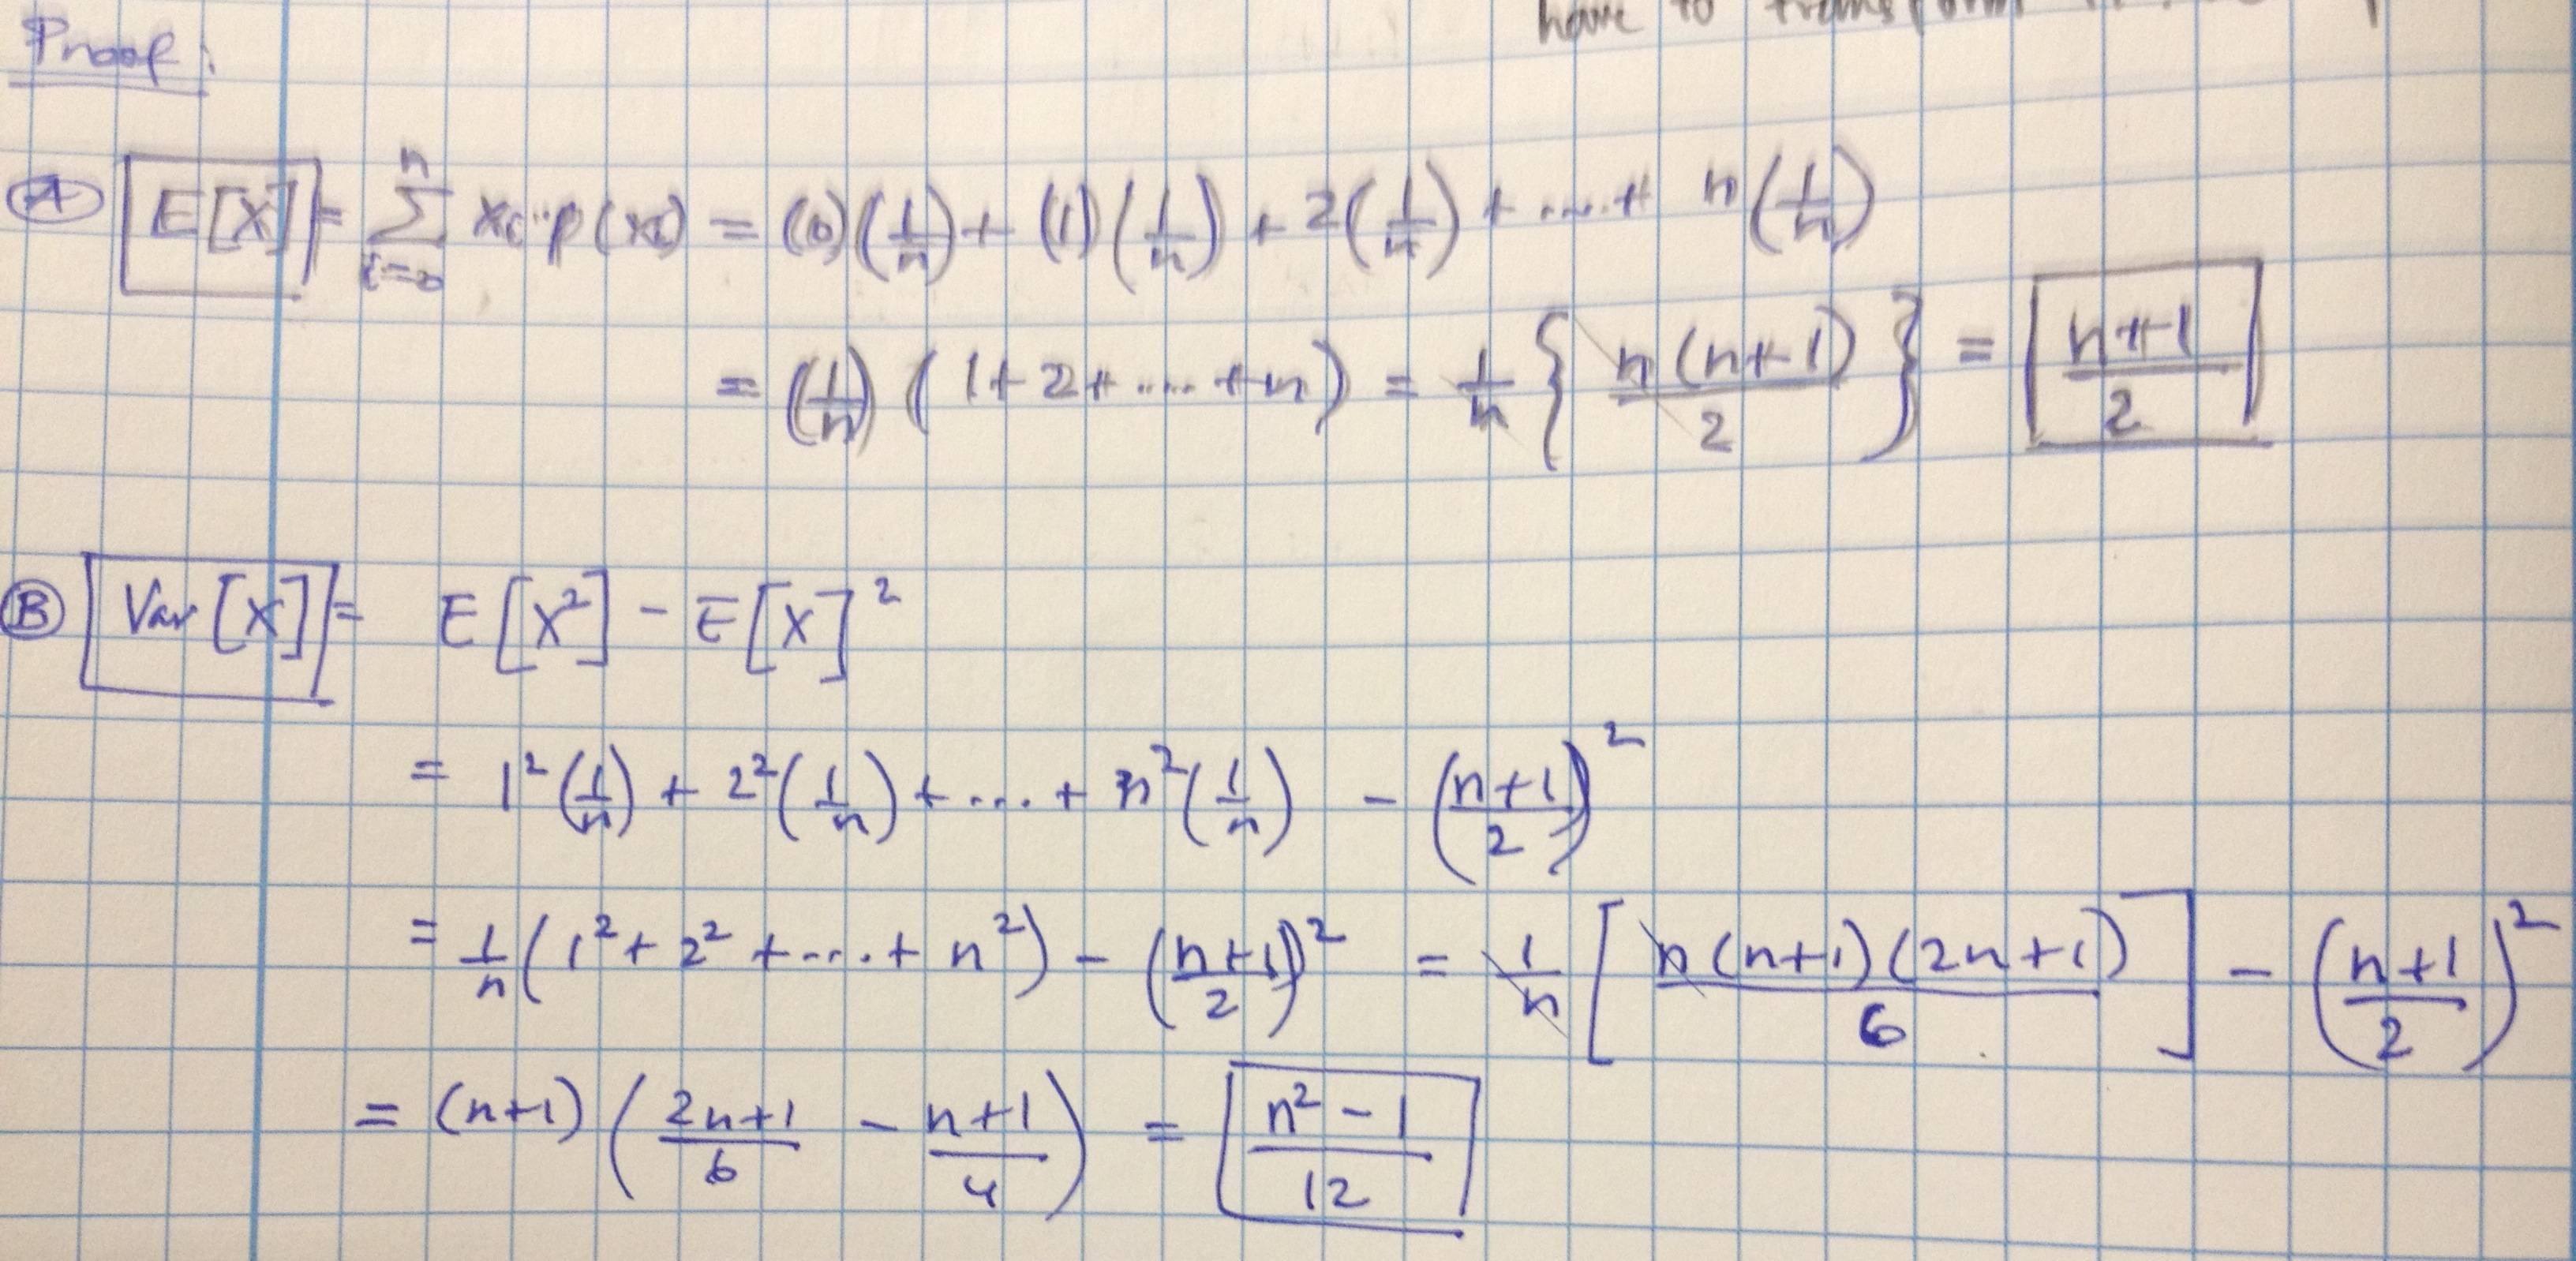 have to transform
Proof:
(A) E[X] = Σ_{i=0}^{n} xᵢ·p(xᵢ) = (0)(1/n) + (1)(1/n) + 2(1/n) + ..... + n(1/n)
= (1/n) (1+2+.....+n) = 1/n { n(n+1)/2 } = n+1/2
(B) Var[X] = E[X²] - E[X]²
= 1²(1/n) + 2²(1/n) + .... + n²(1/n) - (n+1/2)²
= 1/n (1² + 2² + ..... + n²) - (n+1/2)² = 1/n [ n(n+1)(2n+1)/6 ] - (n+1/2)²
= (n+1) (2n+1/6 - n+1/4) = n² - 1/12